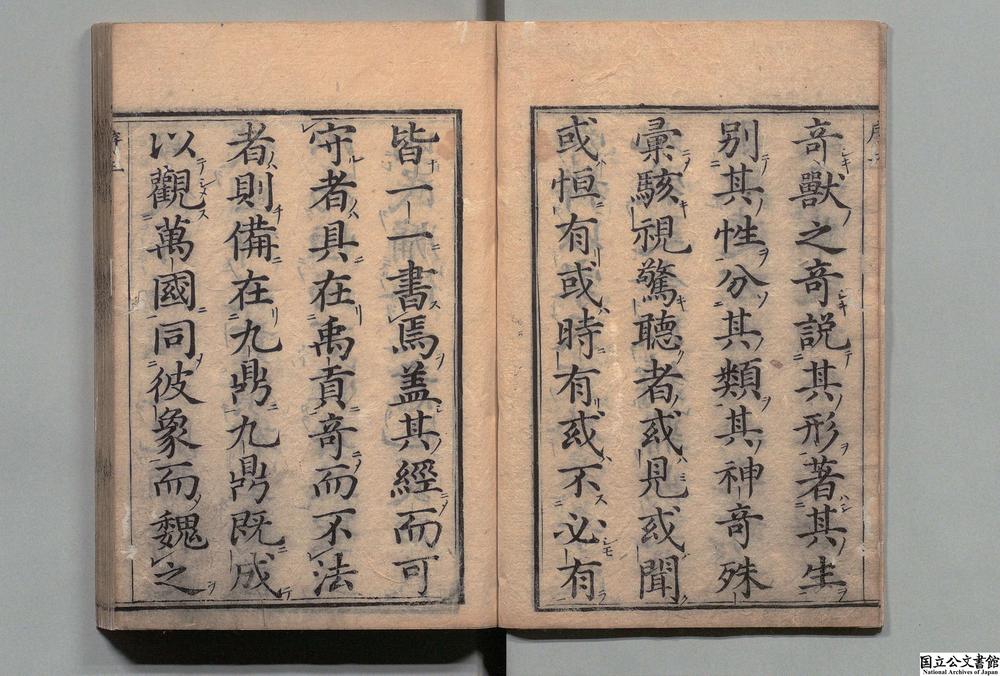 竒獸之竒說其形著其生
别其性分其類其神竒殊
彙駭視驚聽者或見或聞
或恒有或時有或不必有
皆一一書焉盖其經而可
守者具在禹貢竒而不法
者則備在九鼎九鼎既成
以觀萬國同彼象而魏之
国立公文書館
National Archives of Japan